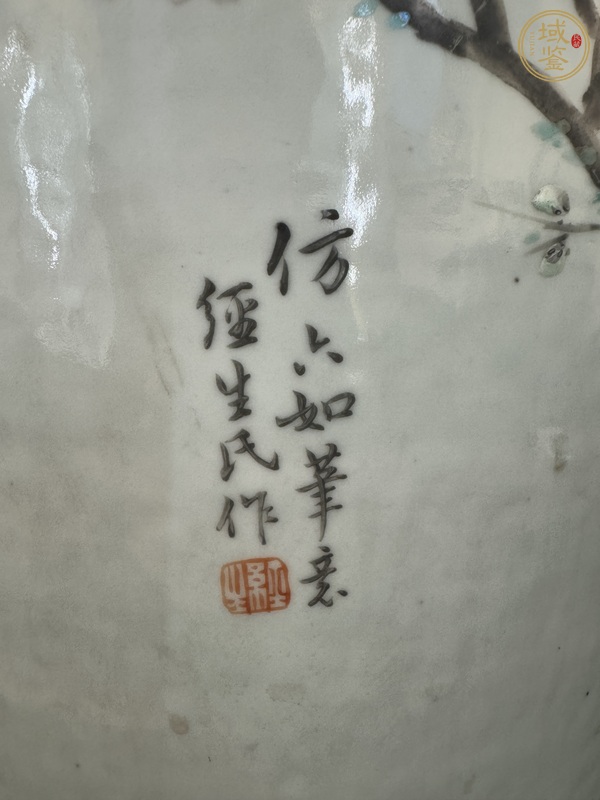 仿六如筆意
經生氏作
經生
域鉴